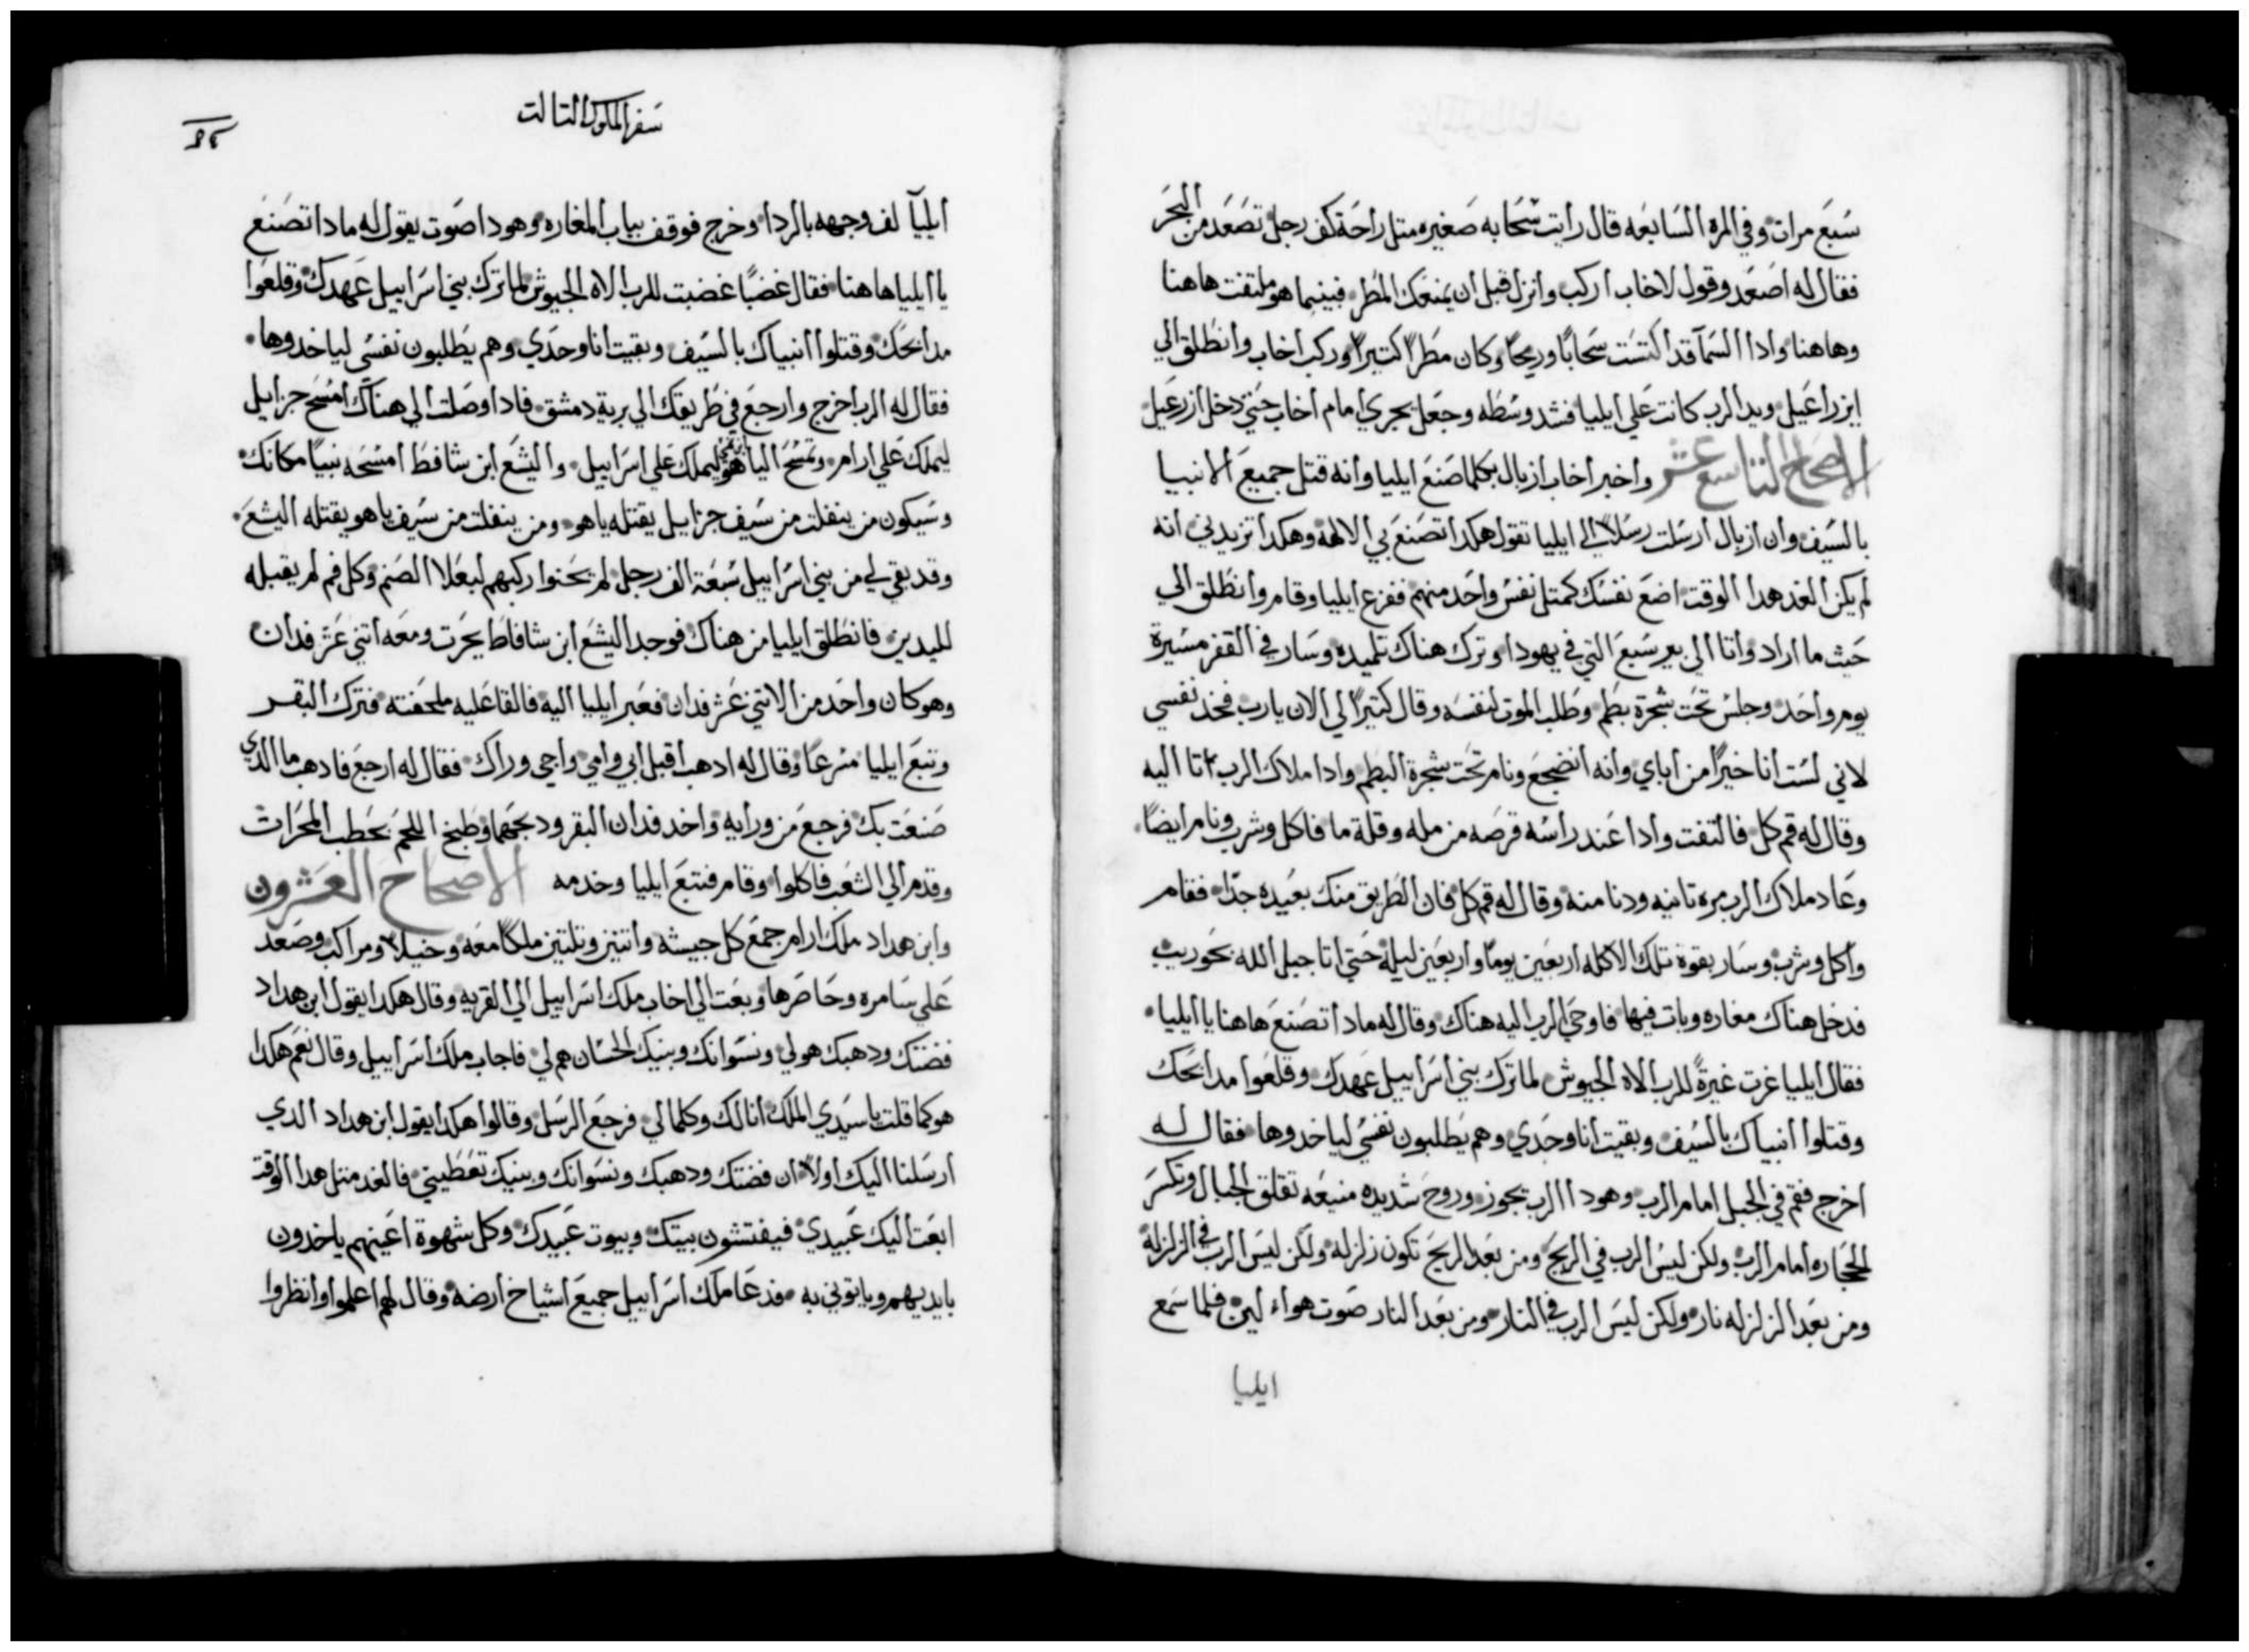 سبع مرات وفي المره السابعه قال رايت سحابه صغيره متل راحة كف رجل تصعد من البحر
فقال له اصعد وقول لاخاب اركب وانزل قبل ان يمنعك المطر فبينما هو ملتفت هاهنا
وهاهنا وادا السمآ قد اكتست سحابًا وريحًا وكان مطرًا كتيرًا وركب اخاب وانطلق الي
ايزراعيل ويد الرب كانت علي ايليا فشد وسطه وجعل يجري امام اخاب حتي دخل ازرعيل
الاصحاح التاسع عشر واخبر اخاب ازبال بكلما صنع ايليا وانه قتل جميع الانبيا
بالسيف وان ازبال ارسلت رسلاً الي ايليا تقول هكدا تصنع بي الالهة وهكدا تزيدني انه
لم يكن الغد هدا الوقت اضع نفسك كمتل نفس واحد منهم ففزع ايليا وقام وانطلق الي
حيث ما اراد واتا الي بير سبع التي في يهودا وترك هناك تلميده وسار في القفر مسيرة
يوم واحد وجلس تحت شجرة بطم وطلب الموت لنفسه وقال كتيرًا لي الان يارب فخد نفسي
لاني لست انا خيرًا من اباي وانه انضجع ونام تحت شجرة البطم وادا ملاك الرب اتا اليه
وقال له قم كل فالتفت وادا عند راسه قرصه من مله وقلة ما فاكل وشرب ونام ايضًا
وعاد ملاك الرب مره تانيه ودنا منه وقال له قم كل فان الطريق منك بعيده جدًا فقام
واكل وشرب وسار بقوة تلك الاكله اربعين يومًا واربعين ليلة حتي اتا جبل الله بحوريب
فدخل هناك مغاره وبات فيها فاوحي الرب اليه هناك وقال له مادا تصنع هاهنا يا ايليا
فقال ايليا غرت غيرةً للرب الاه الجيوش لما ترك بني اسراييل عهدك وقلعوا مدابحك
وقتلوا انبياك بالسيف وبقيت انا وحدي وهم يطلبون نفسي لياخدوها فقال له
اخرج فقم في الجبل امام الرب وهودا الرب يجوز وروح شديده منيعه تقلق الجبال وتكسر
الحجاره امام الرب ولكن ليس الرب في الريح ومن بعد الريح تكون زلزله ولكن ليس الرب في الزلزلة
ومن بعد الزلزله نار ولكن ليس الرب في النار ومن بعد النار صوت هواء لين فلما سمع
ايليا
سفر الملوك التالت
ايليآ لف وجهه بالردا وخرج فوقف بباب المغاره وهودا صوت يقول له مادا تصنع
يا ايليا هاهنا فقال غضبًا غضبت للرب الاه الجيوش لما ترك بني اسراييل عهدك وقلعوا
مدابحك وقتلوا انبياك بالسيف وبقيت انا وحدي وهم يطلبون نفسي لياخدوها
فقال له الرب اخرج وارجع في طريقك الي برية دمشق فادا وصلت الي هناك امسح جزاييل
ليملك علي ارام وتمسح الياهو ليملك علي اسراييل واليشع ابن شافط امسحه نبيًا مكانك
وسيكون من ينفلت من سيف جزاييل يقتله ياهو ومن ينفلت من سيف ياهو يقتله اليشع
وقد بقي لي من بني اسراييل سبعة الف رجل لم يحنوا ركبهم لبعلا الصنم وكل فم لم يقبله
لليدين فانطلق ايليا من هناك فوجد اليشع ابن شافاط يحرت ومعه اتني عشر فدان
وهو كان واحد من الاتني عشر فدان فعبر ايليا اليه فالقا عليه ملحفته فترك البقر
وتبع ايليا مسرعًا وقال له ادهب اقبل ابي وامي واجي وراك فقال له ارجع فادهب ما الدي
صنعت بك فرجع من ورايه واخد فدان البقر ودبحهما وطبخ اللحم بحطب المحرات
وقدم الي الشعب فاكلوا وقام فتبع ايليا وخدمه الاصحاح العشرون
وابن هداد ملك ارام جمع كل جيشه واتنين وتلتين ملكًا معه وخيلاً ومراكب وصعد
علي سامره وحاصرها وبعت الي اخاب ملك اسراييل الي القريه وقال هكدا يقول ابن هداد
فضتك ودهبك هو لي ونسوانك وبنيك الحسان هم لي فاجاب ملك اسراييل وقال نعم هكدا
هو كما قلت يا سيدي الملك انا لك وكلما لي فرجع الرسل وقالوا هكدا يقول ابن هداد الدي
ارسلنا اليك اولاً ان فضتك ودهبك ونسوانك وبنيك تعطيني فالغد متل هدا الوقت
ابعت اليك عبيدي فيفتشون بيتك وبيوت عبيدك وكل شهوة اعينهم ياخدون
بايديهم وياتوني به فدعا ملك اسراييل جميع اشياخ ارضه وقال لهم اعلموا وانظروا